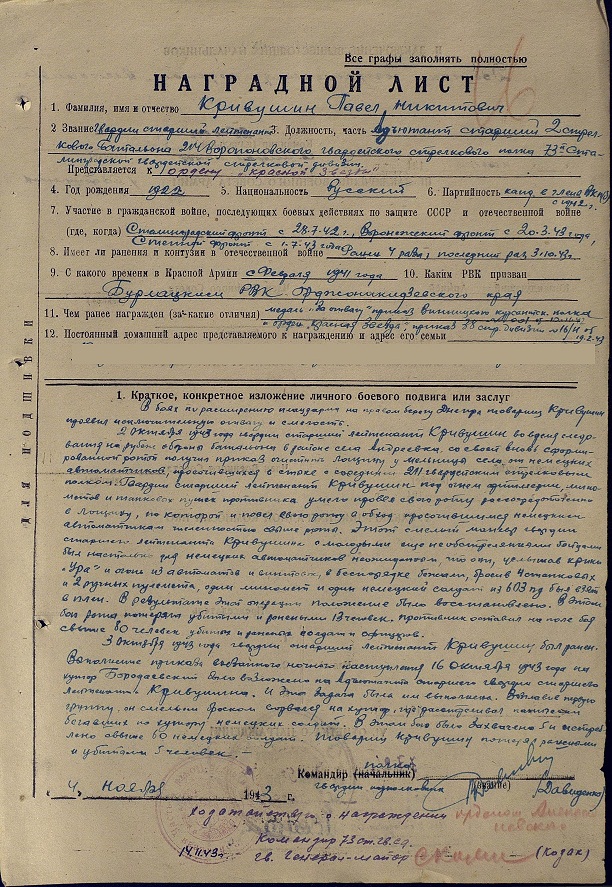 Все графы заполнять полностью
НАГРАДНОЙ ЛИСТ
1. Фамилия, имя и отчество Кривушин Павел Никитович
2 Звание гвардии старший лейтенант 3. Должность, часть Адъютант старший 2 стрел-
кового батальона 214 Воропоновского гвардейского стрелкового полка 73й Ста-
линградской гвардейской стрелковой дивизии.
Представляется к ордену "Красной Звезды"
4. Год рождения 1922 5. Национальность Русский 6. Партийность канд. в члены ВКП(б)
с 1942 г.
7. Участие в гражданской войне, последующих боевых действиях по защите СССР и отечественной войне
(где, когда) Сталинградский фронт с 28.7.42 г., Воронежский фронт с 20.3.43 года,
Степной фронт с 1.7.43 года
8. Имеет ли ранения и контузии в отечественной войне Ранен 4 раза, последний раз 3.10.43 г.
9. С какого времени в Красной Армии с февраля 1941 года 10. Каким РВК призван
Бурлацким РВК Орджоникидзевского края
11. Чем ранее награжден (за какие отличия) медаль "За отвагу" приказ Винницкого курсантск. полка
и орден "Красная Звезда" приказ 38 стр. дивизии № 16/н от
19.2.43
12. Постоянный домашний адрес представляемого к награждению и адрес его семьи
ДЛЯ ПОДШИВКИ
1. Краткое, конкретное изложение личного боевого подвига или заслуг
В боях по расширению плацдарма на правом берегу Днепра товарищ Кривушин
проявил исключительную отвагу и смелость.
2 октября 1943 года гвардии старший лейтенант Кривушин во время следо-
вания на рубеж обороны батальона в районе села Андреевка, со своей вновь сформи-
рованной ротой получил приказ очистить лощину у мельницы села, от немецких
автоматчиков, просочившихся в стыке с соседним 211 гвардейским стрелковым
полком. Гвардии старший лейтенант Кривушин под огнем артиллерии, мино-
метов и танковых пушек противника умело провел свою роту рассредоточено
в лощину, по которой и повел свою роту в обход просочившимся немецким
автоматчикам численностью свыше роты. Этот смелый маневр гвардии
старшего лейтенанта Кривушина с молодыми еще необстрелянными бойцами
был настолько для немецких автоматчиков неожиданным, что они, услышав крики
"Ура" и огонь из автоматов и винтовок, в беспорядке бежали, бросив 4 станковых
и 2 ручных пулемета, один миномет и один немецкий солдат из 603 пд был взят
в плен. В результате этой операции положение было восстановлено. В этом
бою рота потеряла убитыми и ранеными 13 человек. противник оставил на поле боя
свыше 80 человек убитых и раненых солдат и офицеров.
3 октября 1943 года гвардии старший лейтенант Кривушин был ранен.
Выполнение приказа внезапного ночного наступления 16 октября 1943 года на
хутор Бородаевский было возложено на адъютанта старшего гвардии старшего
лейтенанта Кривушина. И эта задача была им выполнена. Возглавив первую
группу, он смелым броском ворвался на хутор, где расстреливал панически
бегавших по хутору немецких солдат. В этом бою было захвачено 5 и истреб-
лено свыше 60 немецких солдат. Товарищ Кривушин потерял ранеными
и убитыми 5 человек.
Командир (начальник) полка
гвардии подполковник (звание) (Давиденко)
4 ноября 1943 г.
Ходатайствую о награждении орденом Александра
Невского
Командир 73 ст. гв. сд.
гв. генерал-майор (Козак)
14.11.43 г.